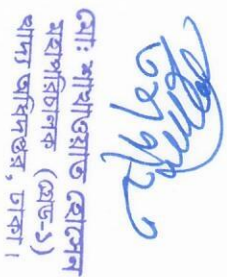 মোঃ শাখাওয়াত হোসেন
মহাপরিচালক (গ্রেড-১)
খাদ্য অধিদপ্তর, ঢাকা।